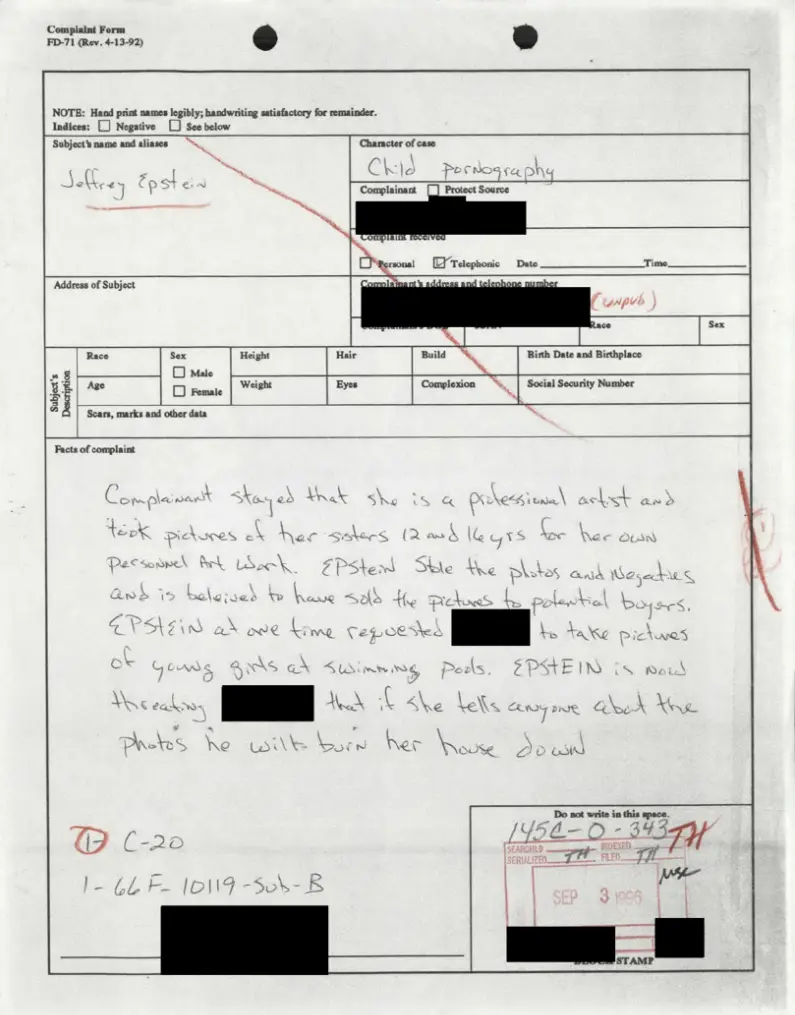 Complaint Form
FD-71 (Rev. 4-13-92)
NOTE: Hand print names legibly; handwriting satisfactory for remainder.
Indices: Negative See below
Subject's name and aliases
Jeffrey Epstein
Character of case
Child pornography
Complainant Protect Source
Complaint received
Personal Telephonic Date Time
Address of Subject
Complainant's address and telephone number
(unpub)
Race
Sex
Subject's Description
Race
Sex
Male
Female
Height
Hair
Build
Birth Date and Birthplace
Age
Weight
Eyes
Complexion
Social Security Number
Scars, marks and other data
Facts of complaint
Complainant stayed that she is a professional artist and
took pictures of her sisters 12 and 16 yrs for her own
personnel Art Work. EPStEiN Stole the photos and Negaties
and is beleived to have sold the pictures to potential buyers.
EPStEiN at one time requested to take pictures
of young girls at swimming pools. EPStEIN is now
threating that if she tells anyone about the
photos he will burn her house down
1- C-20
1-66F-10119-Sub-B
Do not write in this space.
145C-0-343
TH
SEARCHED INDEXED
SERIALIZED TH FILED TH
SEP 3 1996
STAMP